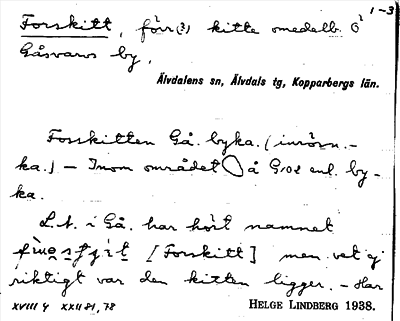 1-3
Forskitt, förr(?) kitte omedelb. Ö
Gåsvarvs by.
Älvdalens sn, Älvdals tg, Kopparbergs län.
Forskitten Gå. byka. (inrörn.-
ka.) – Inom området å G102 enl. by-
ka.
L.A. i Gå. har hört namnet
[Forskitt] men vet ej
riktigt var den kitten ligger. – Har
XVIII 4 XXII 81, 78 HELGE LINDBERG 1938.